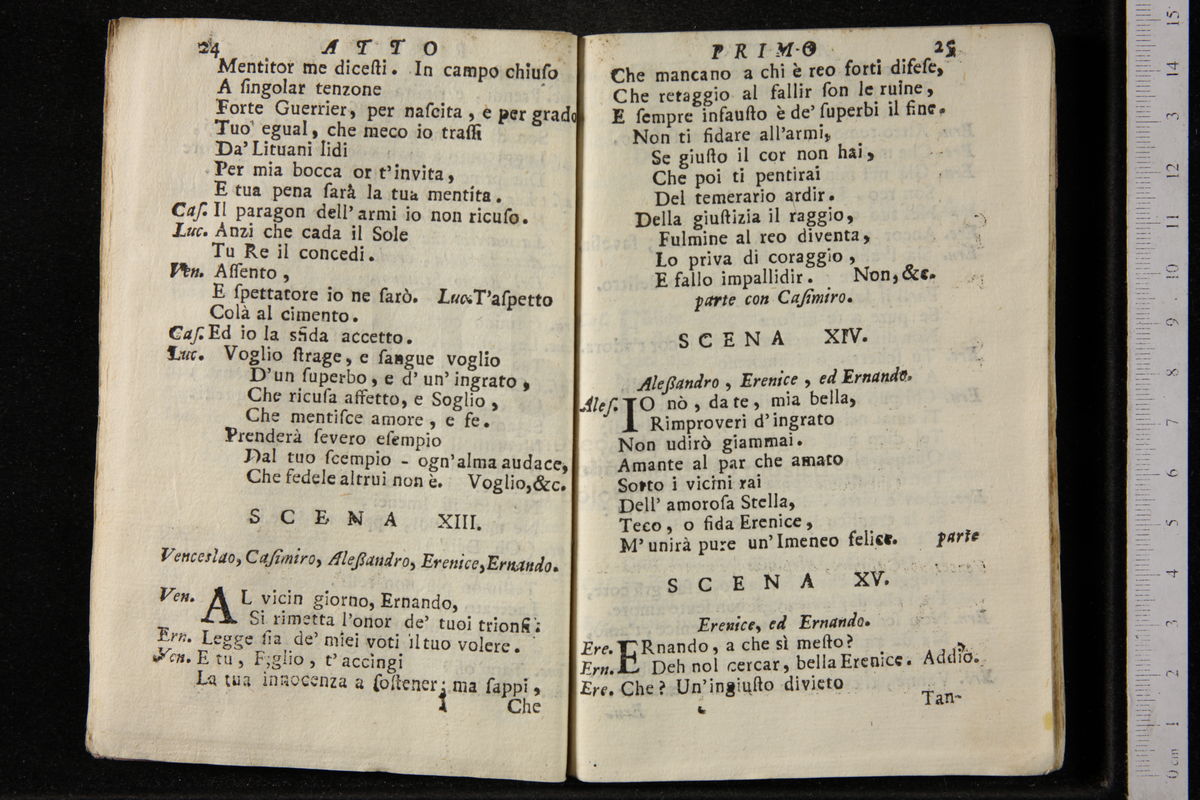 24 ATTO
Mentitor me dicesti. In campo chiuso
A singolar tenzone
Forte Guerrier, per nascita, e per grado
Tuo egual, che meco io trassi
Da' Lituani lidi
Per mia bocca or t'invita,
E tua pena sarà la tua mentita.
Cas. Il paragon dell'armi io non ricuso.
Luc. Anzi che cada il Sole
Tu Re il concedi.
Ven. Assento,
E spettatore io ne sarò. Luc. T'aspetto
Colà al cimento.
Cas. Ed io la sfida accetto.
Luc. Voglio strage, e sangue voglio
D'un superbo, e d'un'ingrato,
Che ricusa affetto, e Soglio,
Che mentisce amore, e fe.
Prenderà severo esempio
Dal tuo scempio - ogn'alma audace,
Che fedele altrui non è. Voglio, &c.
SCENA XIII.
Venceslao, Casimiro, Aleßandro, Erenice, Ernando.
Ven. AL vicin giorno, Ernando,
Si rimetta l'onor de' tuoi trionfi:
Ern. Legge sia de' miei voti il tuo volere.
Ven. E tu, Figlio, t'accingi
La tua innocenza a sostener; ma sappi,
Che
PRIMO 25
Che mancano a chi è reo forti difese,
Che retaggio al fallir son le ruine,
E sempre infausto è de' superbi il fine.
Non ti fidare all'armi,
Se giusto il cor non hai,
Che poi ti pentirai
Del temerario ardir.
Della giustizia il raggio,
Fulmine al reo diventa,
Lo priva di coraggio,
E fallo impallidir. Non, &c.
parte con Casimiro.
SCENA XIV.
Aleßandro, Erenice, ed Ernando.
Ales. IO nò, da te, mia bella,
Rimproveri d'ingrato
Non udirò giammai.
Amante al par che amato
Sotto i vicini rai
Dell' amorosa Stella,
Teco, o fida Erenice,
M'unirà pure un'Imeneo felice. parte
SCENA XV.
Erenice, ed Ernando.
Ere. ERnando, a che sì mesto?
Ern. Deh nol cercar, bella Erenice. Addio.
Ere. Che? Un'ingiusto divieto
Tan-